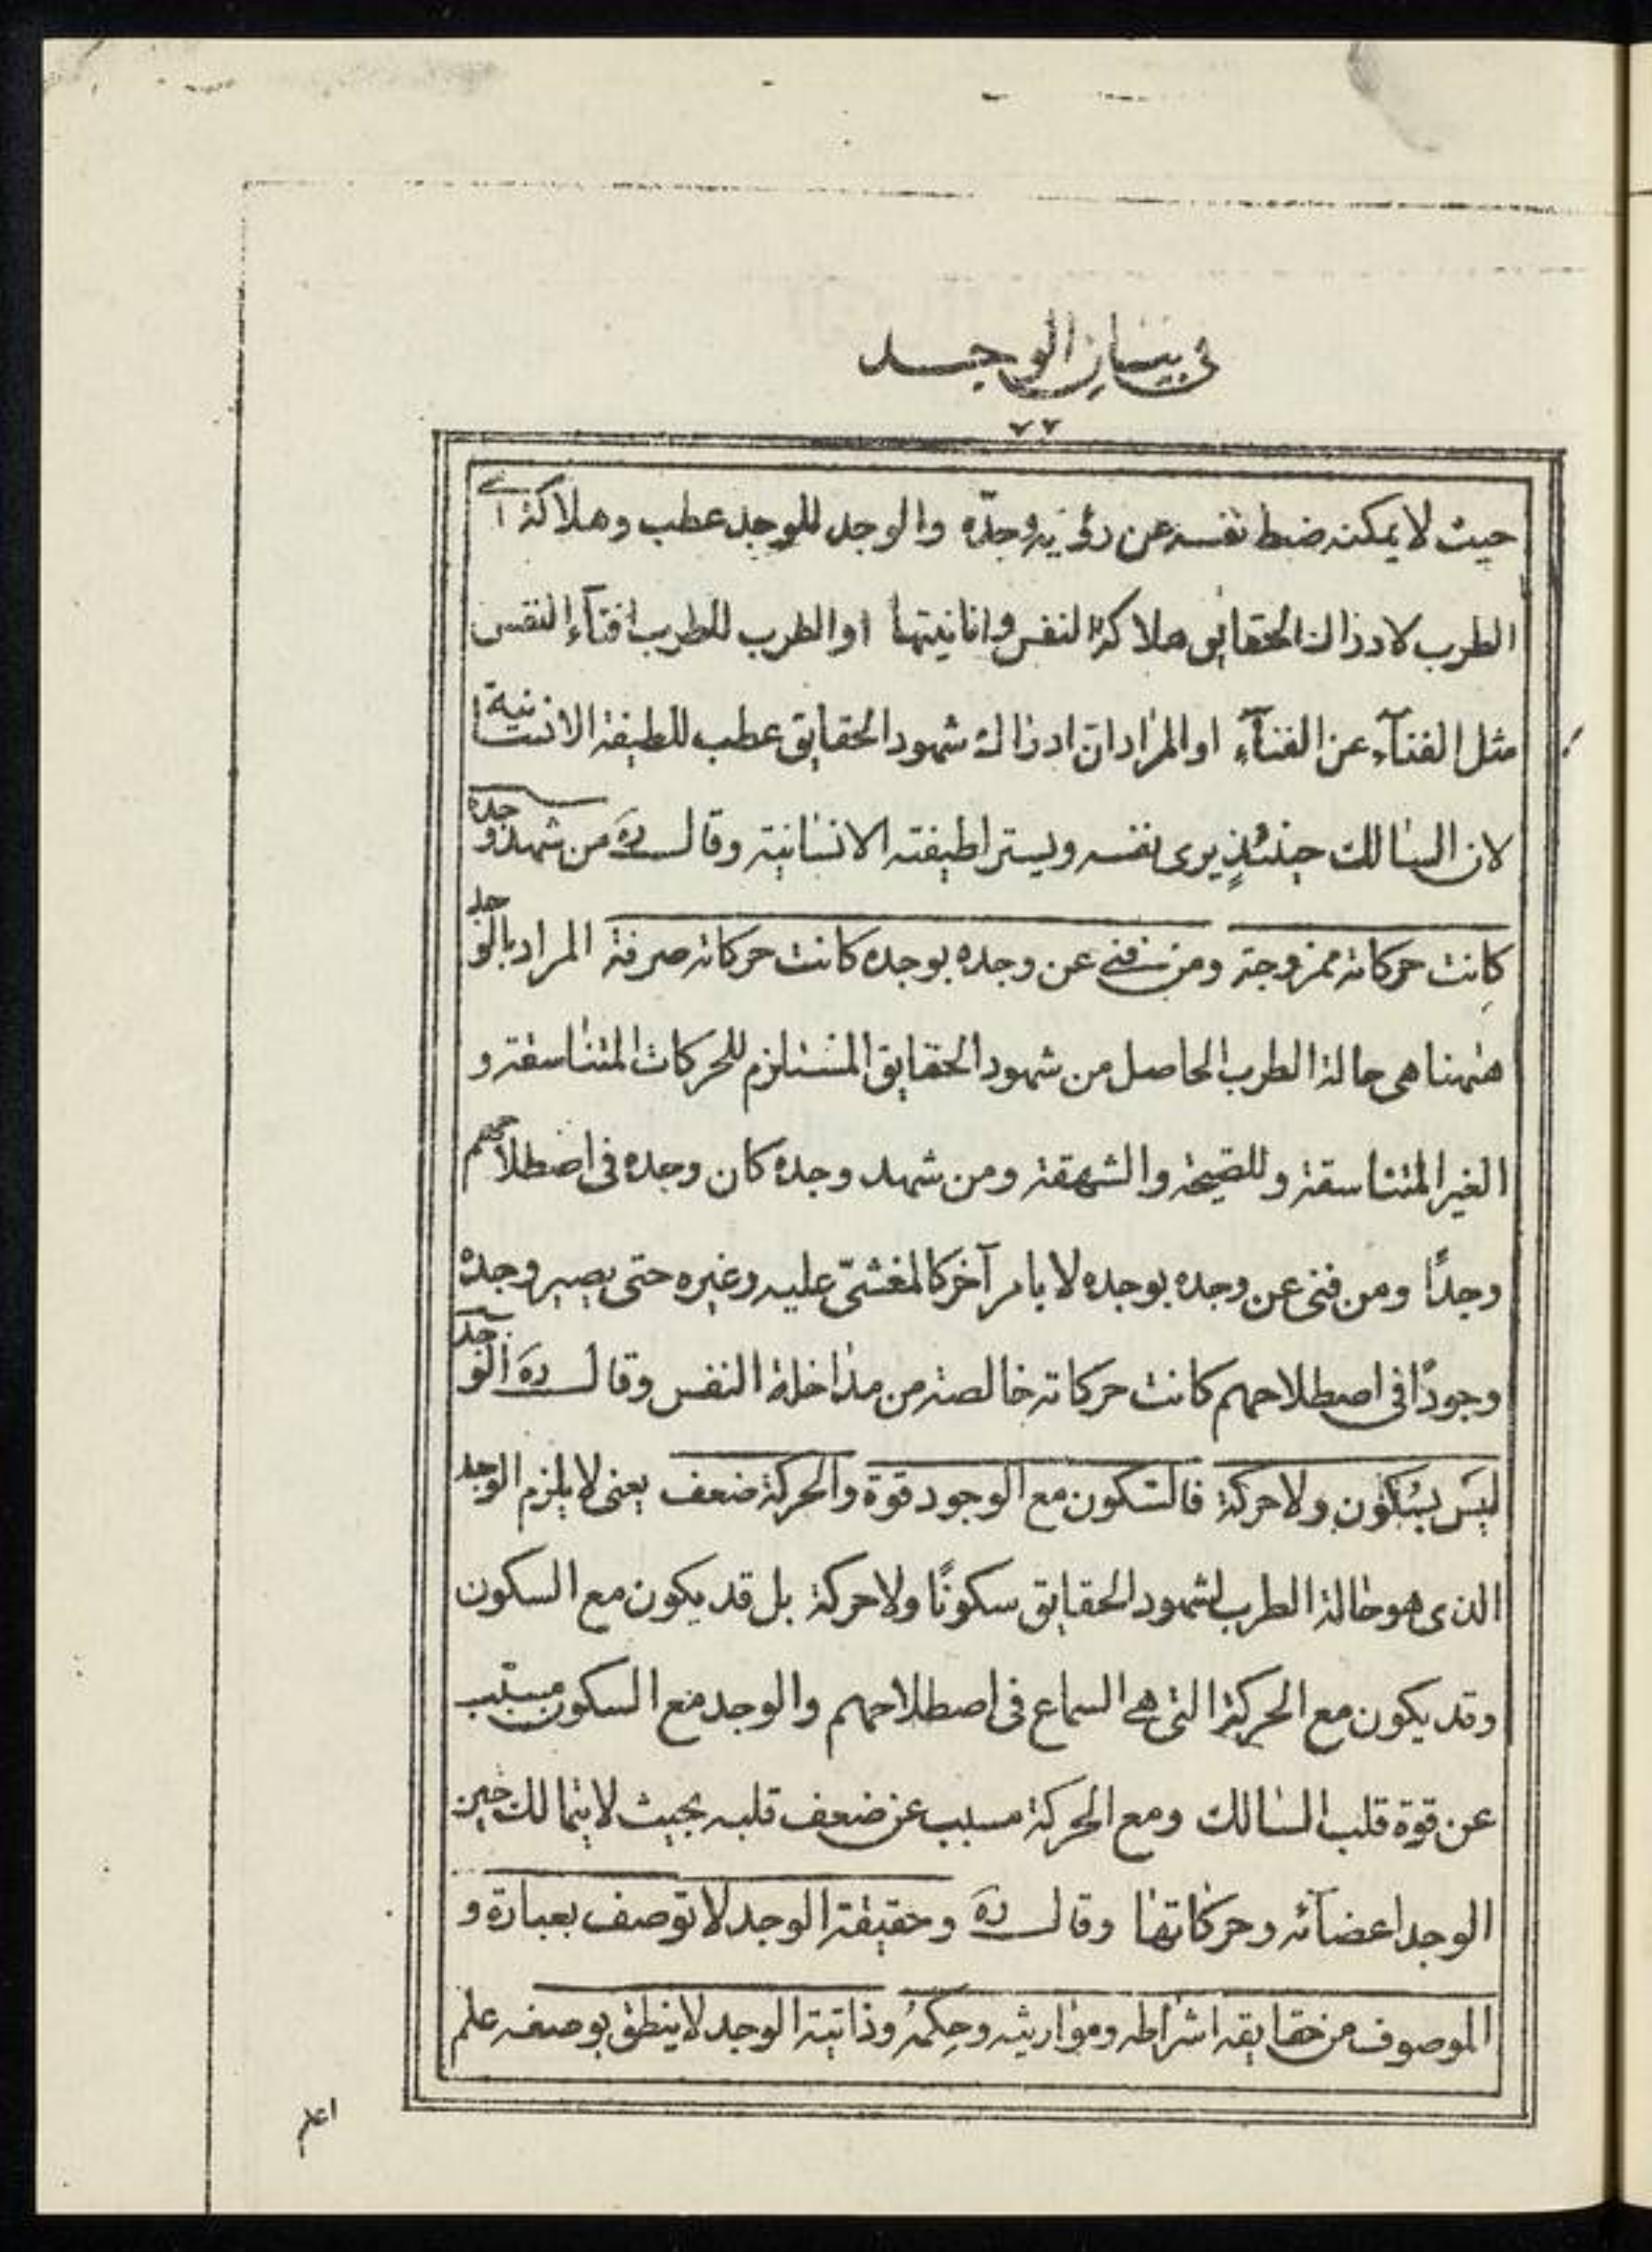 في بيان الوجد
٧٢
حيث لا يمكنه ضبط نفسه عن رؤية وجده والوجد للوجد عطب وهلاكة اى
الطرب لادراك الحقايق هلاكة النفس وانانيتها او الطرب للطرب افنآء النفس
مثل الفنآء عن الفنآء او المراد ان ادراك شهود الحقايق عطب للطيفة الانسانية
لان السالك حينئذٍ يرى نفسه ويستر لطيفته الانسانية وقال ره من شهد وجده
كانت حركاته ممزوجة ومن فنى عن وجده بوجده كانت حركاته صرفة المراد بالوجد
ههنا هى حالة الطرب الحاصل من شهود الحقايق المستلزم للحركات المتناسقة و
الغير المتناسقة وللصيحة والشهقة ومن شهد وجده كان وجده فى اصطلاحهم
وجدًا ومن فنى عن وجده بوجده لا بامر آخر كالمغشىّ عليه وغيره حتى يصير وجده
وجودًا فى اصطلاحهم كانت حركاته خالصة من مداخلة النفس وقال ره الوجد
ليس بسكون ولا حركة فالسّكون مع الوجود قوة والحركة ضعف يعنى لا يلزم الوجد
الذى هو حالة الطرب لشهود الحقايق سكونًا ولا حركة بل قد يكون مع السكون
وقد يكون مع الحركة التى هى السماع فى اصطلاحهم والوجد مع السكون مسبّب
عن قوة قلب السالك ومع الحركة مسبب عن ضعف قلبه بحيث لا يتمالك حين
الوجد اعضآئه وحركاتها وقال ره وحقيقة الوجد لا توصف بعبارة و
الموصوف من حقايقه اشراطه ومواريثه وحِكمهُ وذاتية الوجد لا ينطق بوصفه علم
اعلم